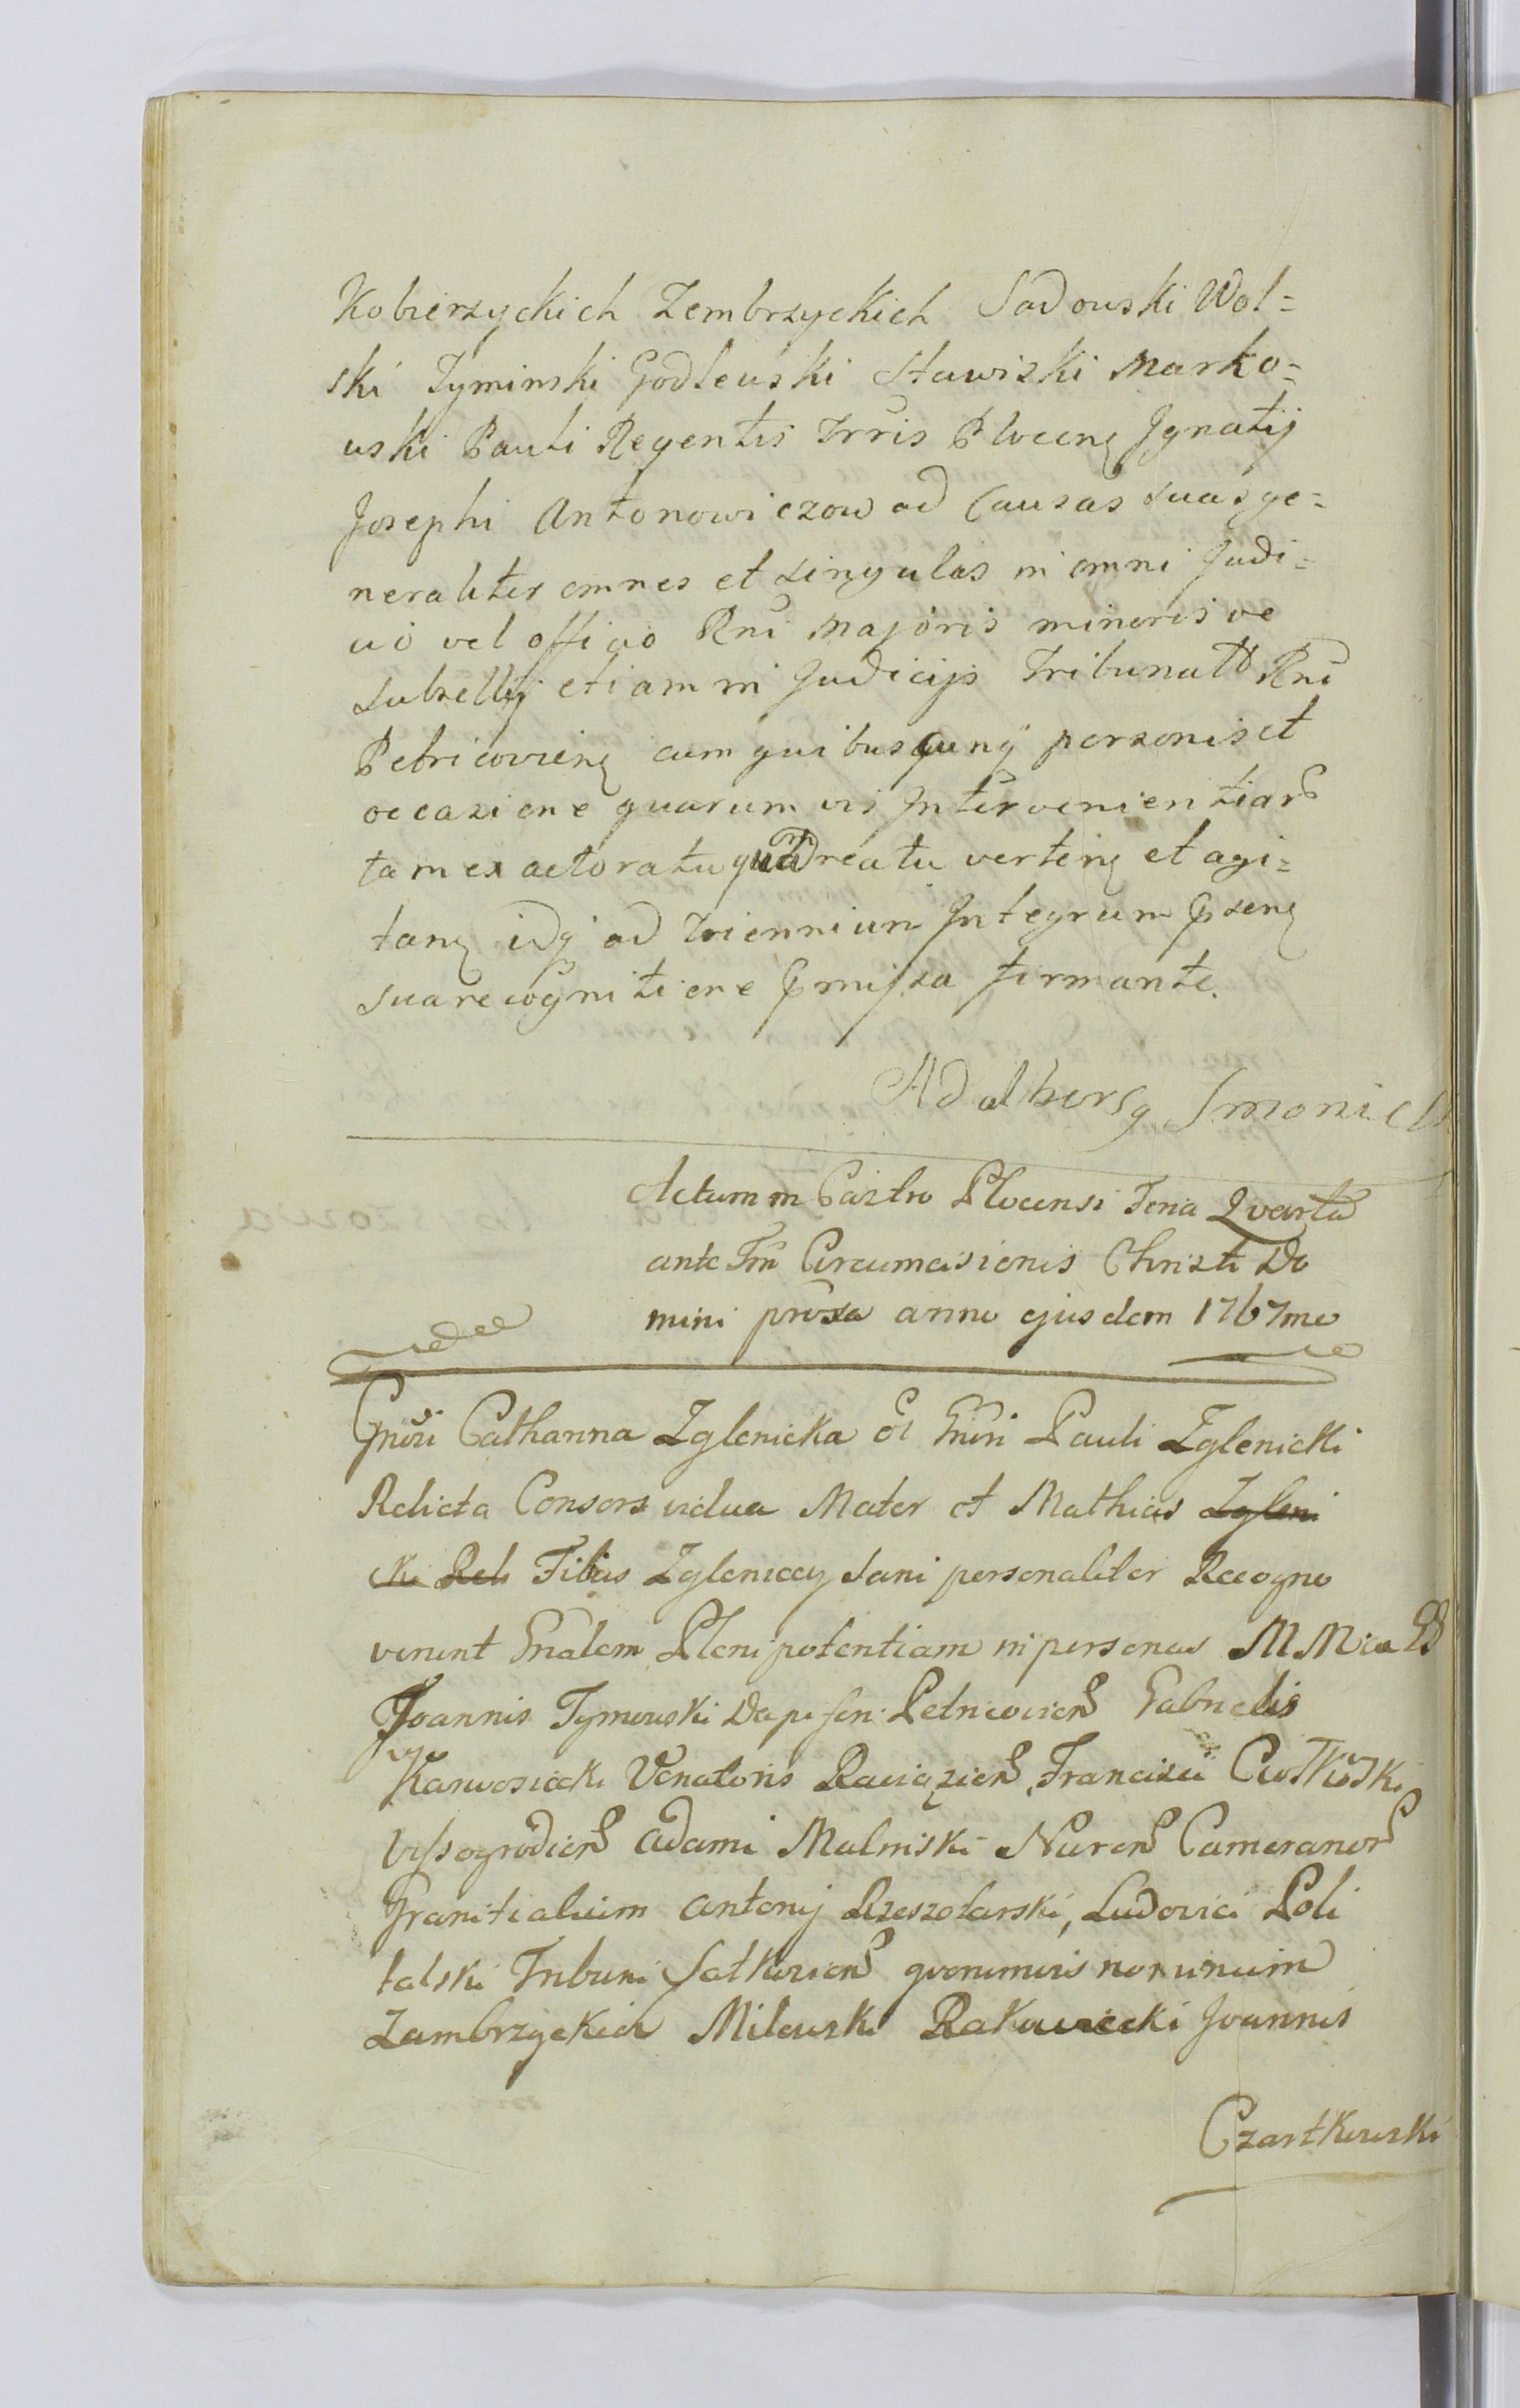 Kobierzyckich Zembrzyckich Sadowski Wol=
ski Zyminski Godlewski Stawiski Marko=
wski Pauli Regentis Trris Plocens Ignatij
Josephi Antonowiczow ad Causas suas ge=
neraliter omnes et singulas in omni Judi=
cio vel officio Rni Majoris minoris ve
subsellij etiam in Judicijs Tribunalis Rni
Petricoviens cum quibuscunq personis et
occasione quarumvis Intervenientiar
tam ex actoratu quam reatu vertens et agi=
tans idq ad Triennium Integrum psens
sua recognitione pmissa firmante.
Adalbers Smonich
Actum in Castro Plocensi Feria Quarta
ante Fm Circumcisionis Christi Do
mini proxa anno ejusdem 1767mo
Gnosi Catharina Zglenicka ol Gnsi Pauli Zglenicki
Relicta Consors vidua Mater et Mathias Zgleni
cki Reli Filius Zgleniccy sani personaliter Recogno
verunt Gnalem Plenipotentiam in personas M M
Joannis Tymowski Dapiferi Petricovien Gabrielis
Karwosiecki Venatoris Raciązien Francisci
Wyssogrodien Adami Malinski Nuren Cameranor
Granitialium Antonij Rzeszotarski, Ludovici Poli
talski Tribuni quorumvis non unum
Zambrzyckich Milewski Rakowiecki Joannis
Czartkowski